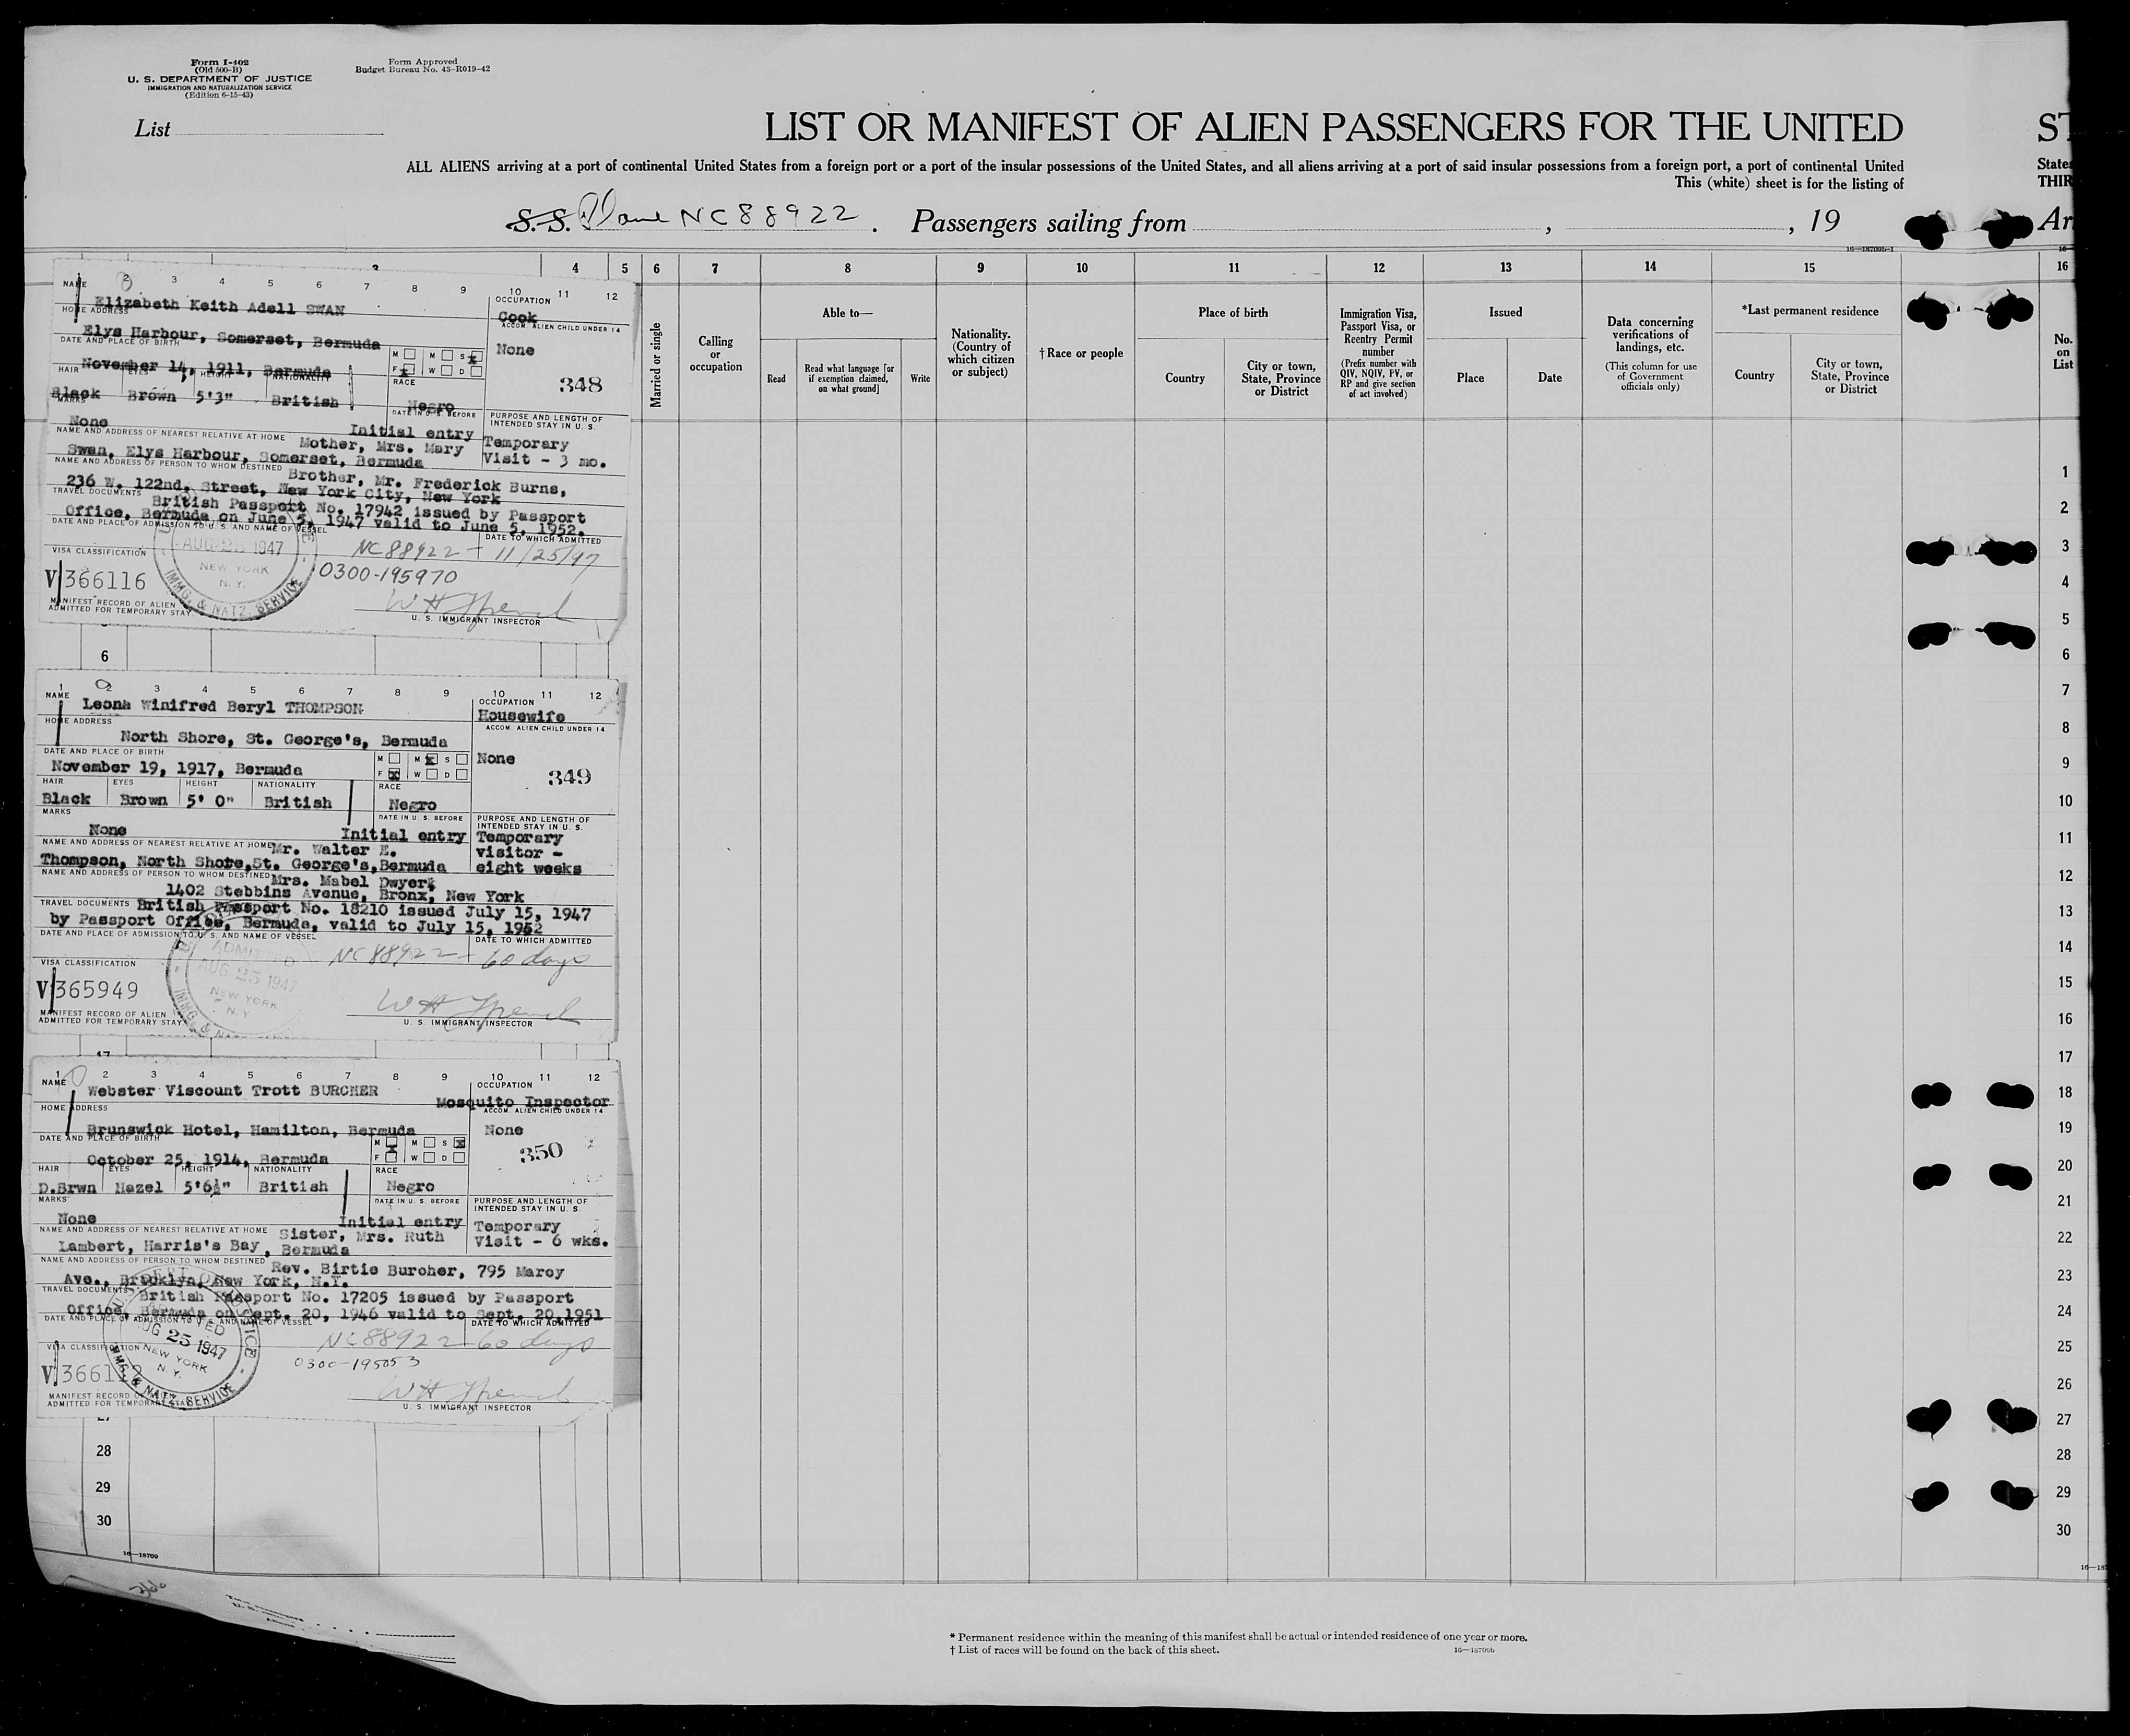 Form I-402
(Old 500-B)
U. S. DEPARTMENT OF JUSTICE
IMMIGRATION AND NATURALIZATION SERVICE
(Edition 6-15-43)
Form Approved
Budget Bureau No. 43-R019-42
List
LIST OR MANIFEST OF ALIEN PASSENGERS FOR THE UNITED
ST
ALL ALIENS arriving at a port of continental United States from a foreign port or a port of the insular possessions of the United States, and all aliens arriving at a port of said insular possessions from a foreign port, a port of continental United
States
This (white) sheet is for the listing of
THIR
S. S. Plane NC 88922 . Passengers sailing from , , 19
Ar
16—18709b-1
3 4 5 6 7 8 9 10 11 12 13 14 15 16
Married or single
Calling
or
occupation
Able to—
Read
Read what language [or
if exemption claimed,
on what ground]
Write
Nationality.
(Country of
which citizen
or subject)
† Race or people
Place of birth
Country
City or town,
State, Province
or District
Immigration Visa,
Passport Visa, or
Reentry Permit
number
(Prefix number with
QIV, NQIV, PV, or
RP and give section
of act involved)
Issued
Place
Date
Data concerning
verifications of
landings, etc.
(This column for use
of Government
officials only)
*Last permanent residence
Country
City or town,
State, Province
or District
No.
on
List
2 3 4 5 6 7 8 9 10 11 12
NAME
Elizabeth Keith Adell SWAN
OCCUPATION
Cook
HOME ADDRESS
Elys Harbour, Somerset, Bermuda
ACCOM. ALIEN CHILD UNDER 14
None
DATE AND PLACE OF BIRTH
November 14, 1911, Bermuda
M M S x
F x W D
348
HAIR EYES HEIGHT NATIONALITY RACE
Black Brown 5'3" British Negro
MARKS
None
DATE IN U. S. BEFORE
Initial entry
PURPOSE AND LENGTH OF
INTENDED STAY IN U. S.
Temporary
Visit - 3 mo.
NAME AND ADDRESS OF NEAREST RELATIVE AT HOME Mother, Mrs. Mary
Swan, Elys Harbour, Somerset, Bermuda
NAME AND ADDRESS OF PERSON TO WHOM DESTINED Brother, Mr. Frederick Burns,
236 W. 122nd. Street, New York City, New York
TRAVEL DOCUMENTS British Passport No. 17942 issued by Passport
Office, Bermuda on June 5, 1947 valid to June 5, 1952.
DATE AND PLACE OF ADMISSION TO U. S. AND NAME OF VESSEL
DATE TO WHICH ADMITTED
AUG 25 1947
NEW YORK
N. Y.
IMMG. & NATZ. SERVICE
NC 88922 - 11/25/47
VISA CLASSIFICATION
0300-195970
V 366116
MANIFEST RECORD OF ALIEN
ADMITTED FOR TEMPORARY STAY
U. S. IMMIGRANT INSPECTOR
6
1 2 3 4 5 6 7 8 9 10 11 12
NAME
Leona Winifred Beryl THOMPSON
OCCUPATION
Housewife
HOME ADDRESS
North Shore, St. George's, Bermuda
ACCOM. ALIEN CHILD UNDER 14
None
DATE AND PLACE OF BIRTH
November 19, 1917, Bermuda
M M x S
F x W D
349
HAIR EYES HEIGHT NATIONALITY RACE
Black Brown 5' 0" British Negro
MARKS
None
DATE IN U. S. BEFORE
Initial entry
PURPOSE AND LENGTH OF
INTENDED STAY IN U. S.
Temporary
visitor -
eight weeks
NAME AND ADDRESS OF NEAREST RELATIVE AT HOME Mr. Walter E.
Thompson, North Shore, St. George's, Bermuda
NAME AND ADDRESS OF PERSON TO WHOM DESTINED Mrs. Mabel Dwyer,
1402 Stebbins Avenue, Bronx, New York
TRAVEL DOCUMENTS British Passport No. 18210 issued July 15, 1947
by Passport Office, Bermuda, valid to July 15, 1952
DATE AND PLACE OF ADMISSION TO U. S. AND NAME OF VESSEL
DATE TO WHICH ADMITTED
ADMITTED
AUG 25 1947
NEW YORK
N. Y.
NC 88922 - 60 days
VISA CLASSIFICATION
V 365949
MANIFEST RECORD OF ALIEN
ADMITTED FOR TEMPORARY STAY
U. S. IMMIGRANT INSPECTOR
17
1 2 3 4 5 6 7 8 9 10 11 12
NAME
Webster Viscount Trott BURCHER
OCCUPATION
Mosquito Inspector
HOME ADDRESS
Brunswick Hotel, Hamilton, Bermuda
ACCOM. ALIEN CHILD UNDER 14
None
DATE AND PLACE OF BIRTH
October 25, 1914, Bermuda
M x M S x
F W D
350
HAIR EYES HEIGHT NATIONALITY RACE
D.Brwn Hazel 5'6½" British Negro
MARKS
None
DATE IN U. S. BEFORE
Initial entry
PURPOSE AND LENGTH OF
INTENDED STAY IN U. S.
Temporary
Visit - 6 wks.
NAME AND ADDRESS OF NEAREST RELATIVE AT HOME Sister, Mrs. Ruth
Lambert, Harris's Bay, Bermuda
NAME AND ADDRESS OF PERSON TO WHOM DESTINED Rev. Birtie Burcher, 795 Marcy
Ave., Brooklyn, New York, N.Y.
TRAVEL DOCUMENTS British Passport No. 17205 issued by Passport
Office, Bermuda on Sept. 20, 1946 valid to Sept. 20, 1951
DATE AND PLACE OF ADMISSION TO U. S. AND NAME OF VESSEL
DATE TO WHICH ADMITTED
AUG 25 1947
NEW YORK
N. Y.
IMMG. & NATZ. SERVICE
NC 88922 - 60 days
VISA CLASSIFICATION
0300-195053
MANIFEST RECORD OF ALIEN
ADMITTED FOR TEMPORARY STAY
U. S. IMMIGRANT INSPECTOR
28
29
30
16—18709
366
1
2
3
4
5
6
7
8
9
10
11
12
13
14
15
16
17
18
19
20
21
22
23
24
25
26
27
28
29
30
* Permanent residence within the meaning of this manifest shall be actual or intended residence of one year or more.
† List of races will be found on the back of this sheet.
16—18709b